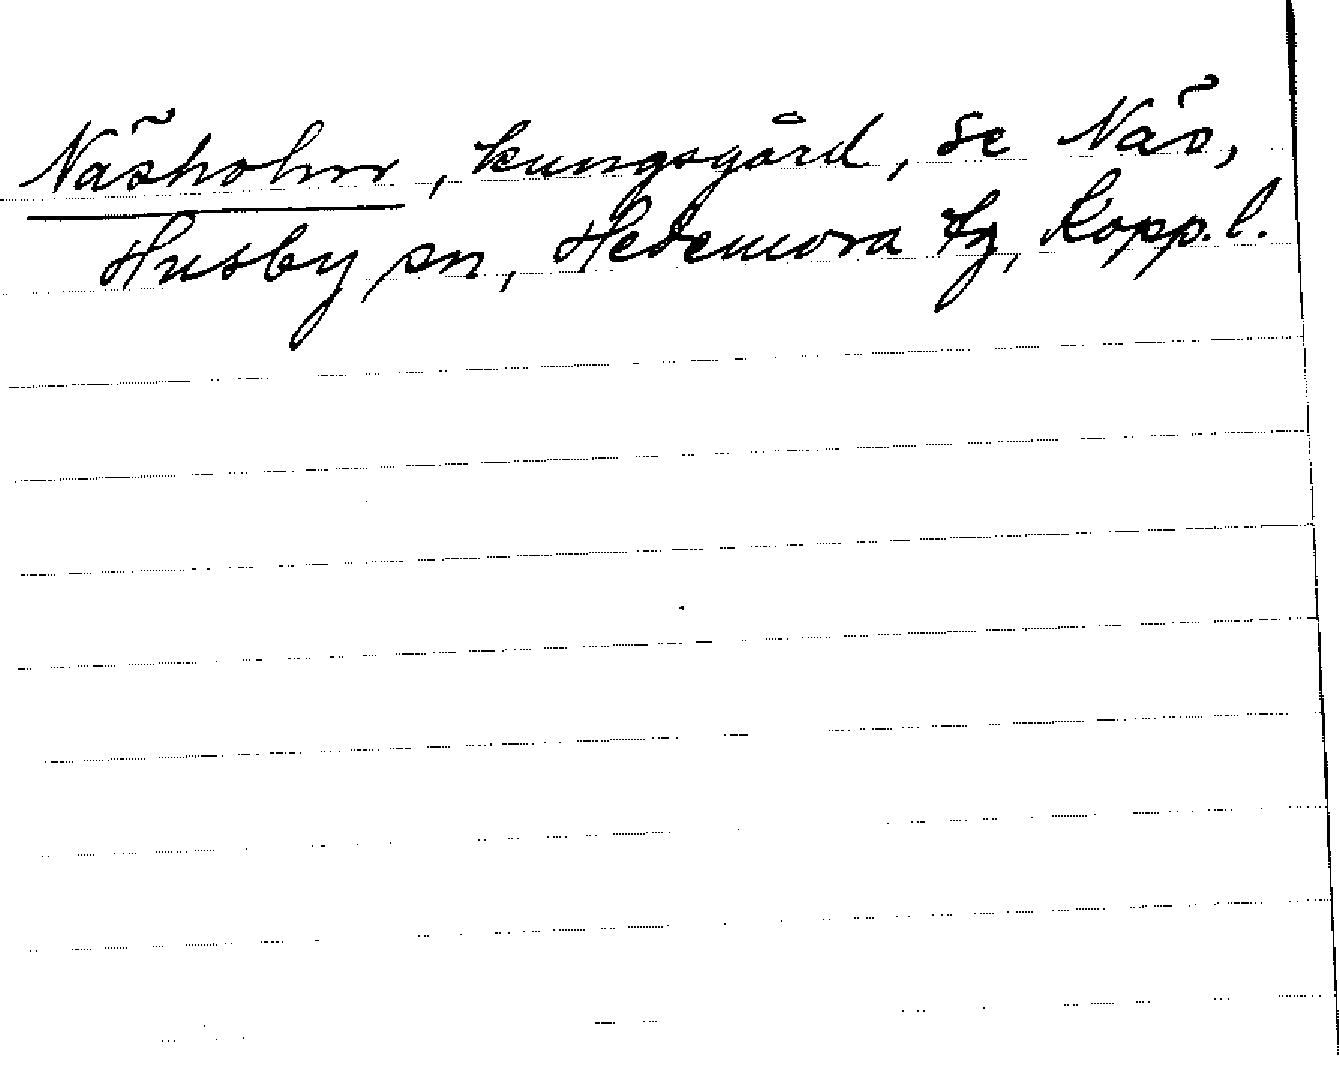 Näsholm, kungsgård, se Näs,
Husby sn, Hedemora tg, Kopp.l.